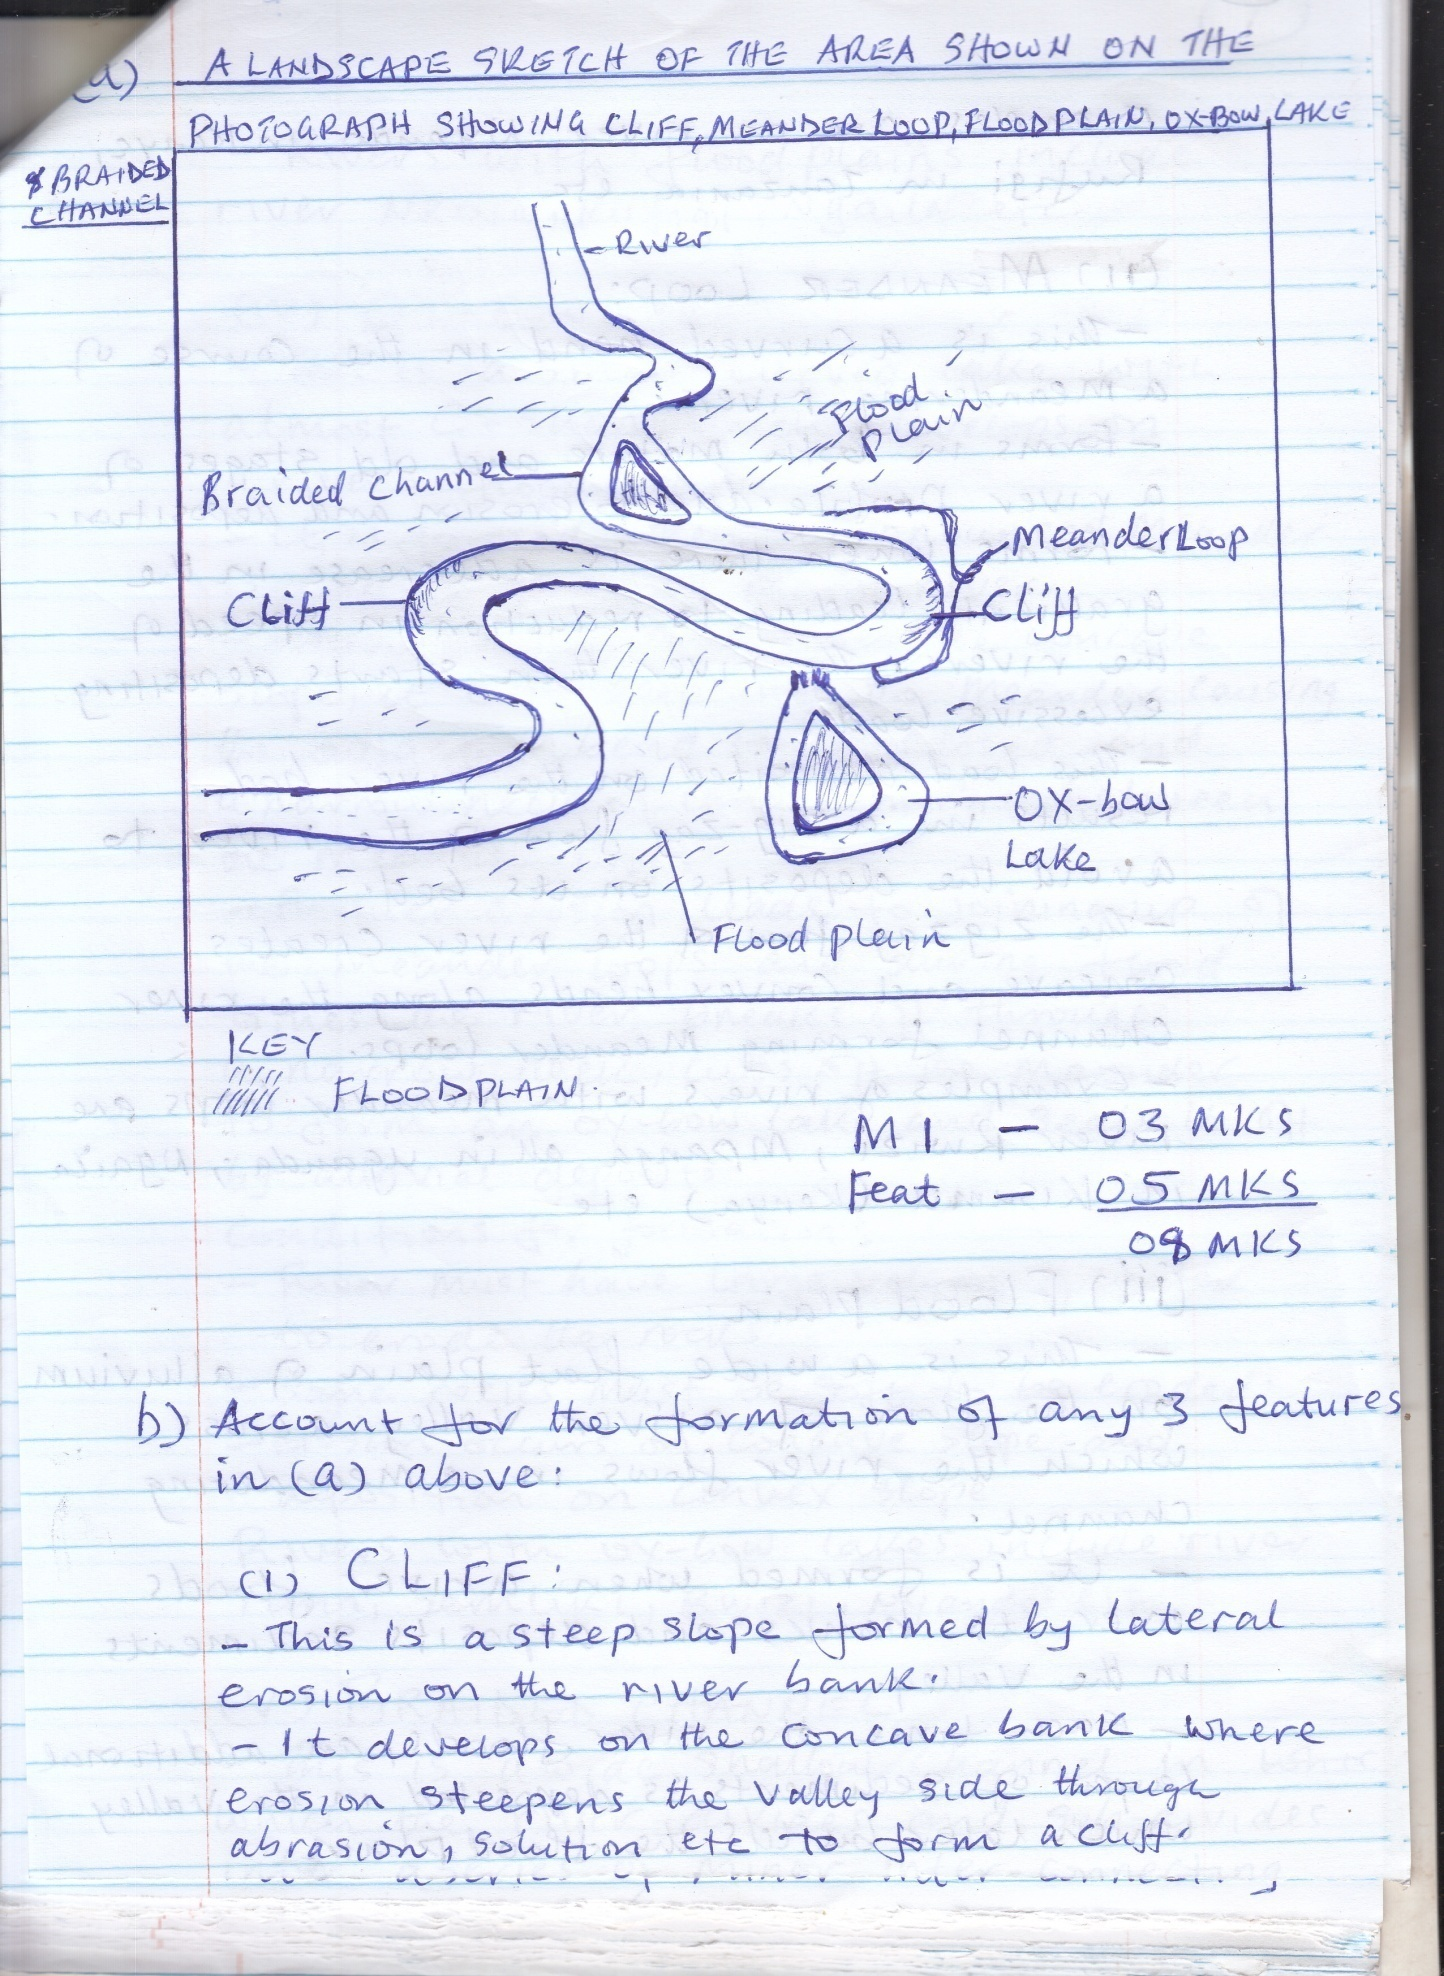 a) A LANDSCAPE SKETCH OF THE AREA SHOWN ON THE
PHOTOGRAPH SHOWING CLIFF, MEANDER LOOP, FLOOD PLAIN, OX-BOW LAKE
& BRAIDED
CHANNEL
River
Flood
Plain
Braided channel
Meander Loop
Cliff
Cliff
OX-bow
Lake
Flood plain
KEY
FLOOD PLAIN.
M1 - 03 MKS
Feat - 05 MKS
08 MKS
b) Account for the formation of any 3 features
in (a) above:
(i) CLIFF:
- This is a steep slope formed by lateral
erosion on the river bank.
- It develops on the concave bank where
erosion steepens the valley side through
abrasion, solution etc to form a cliff.